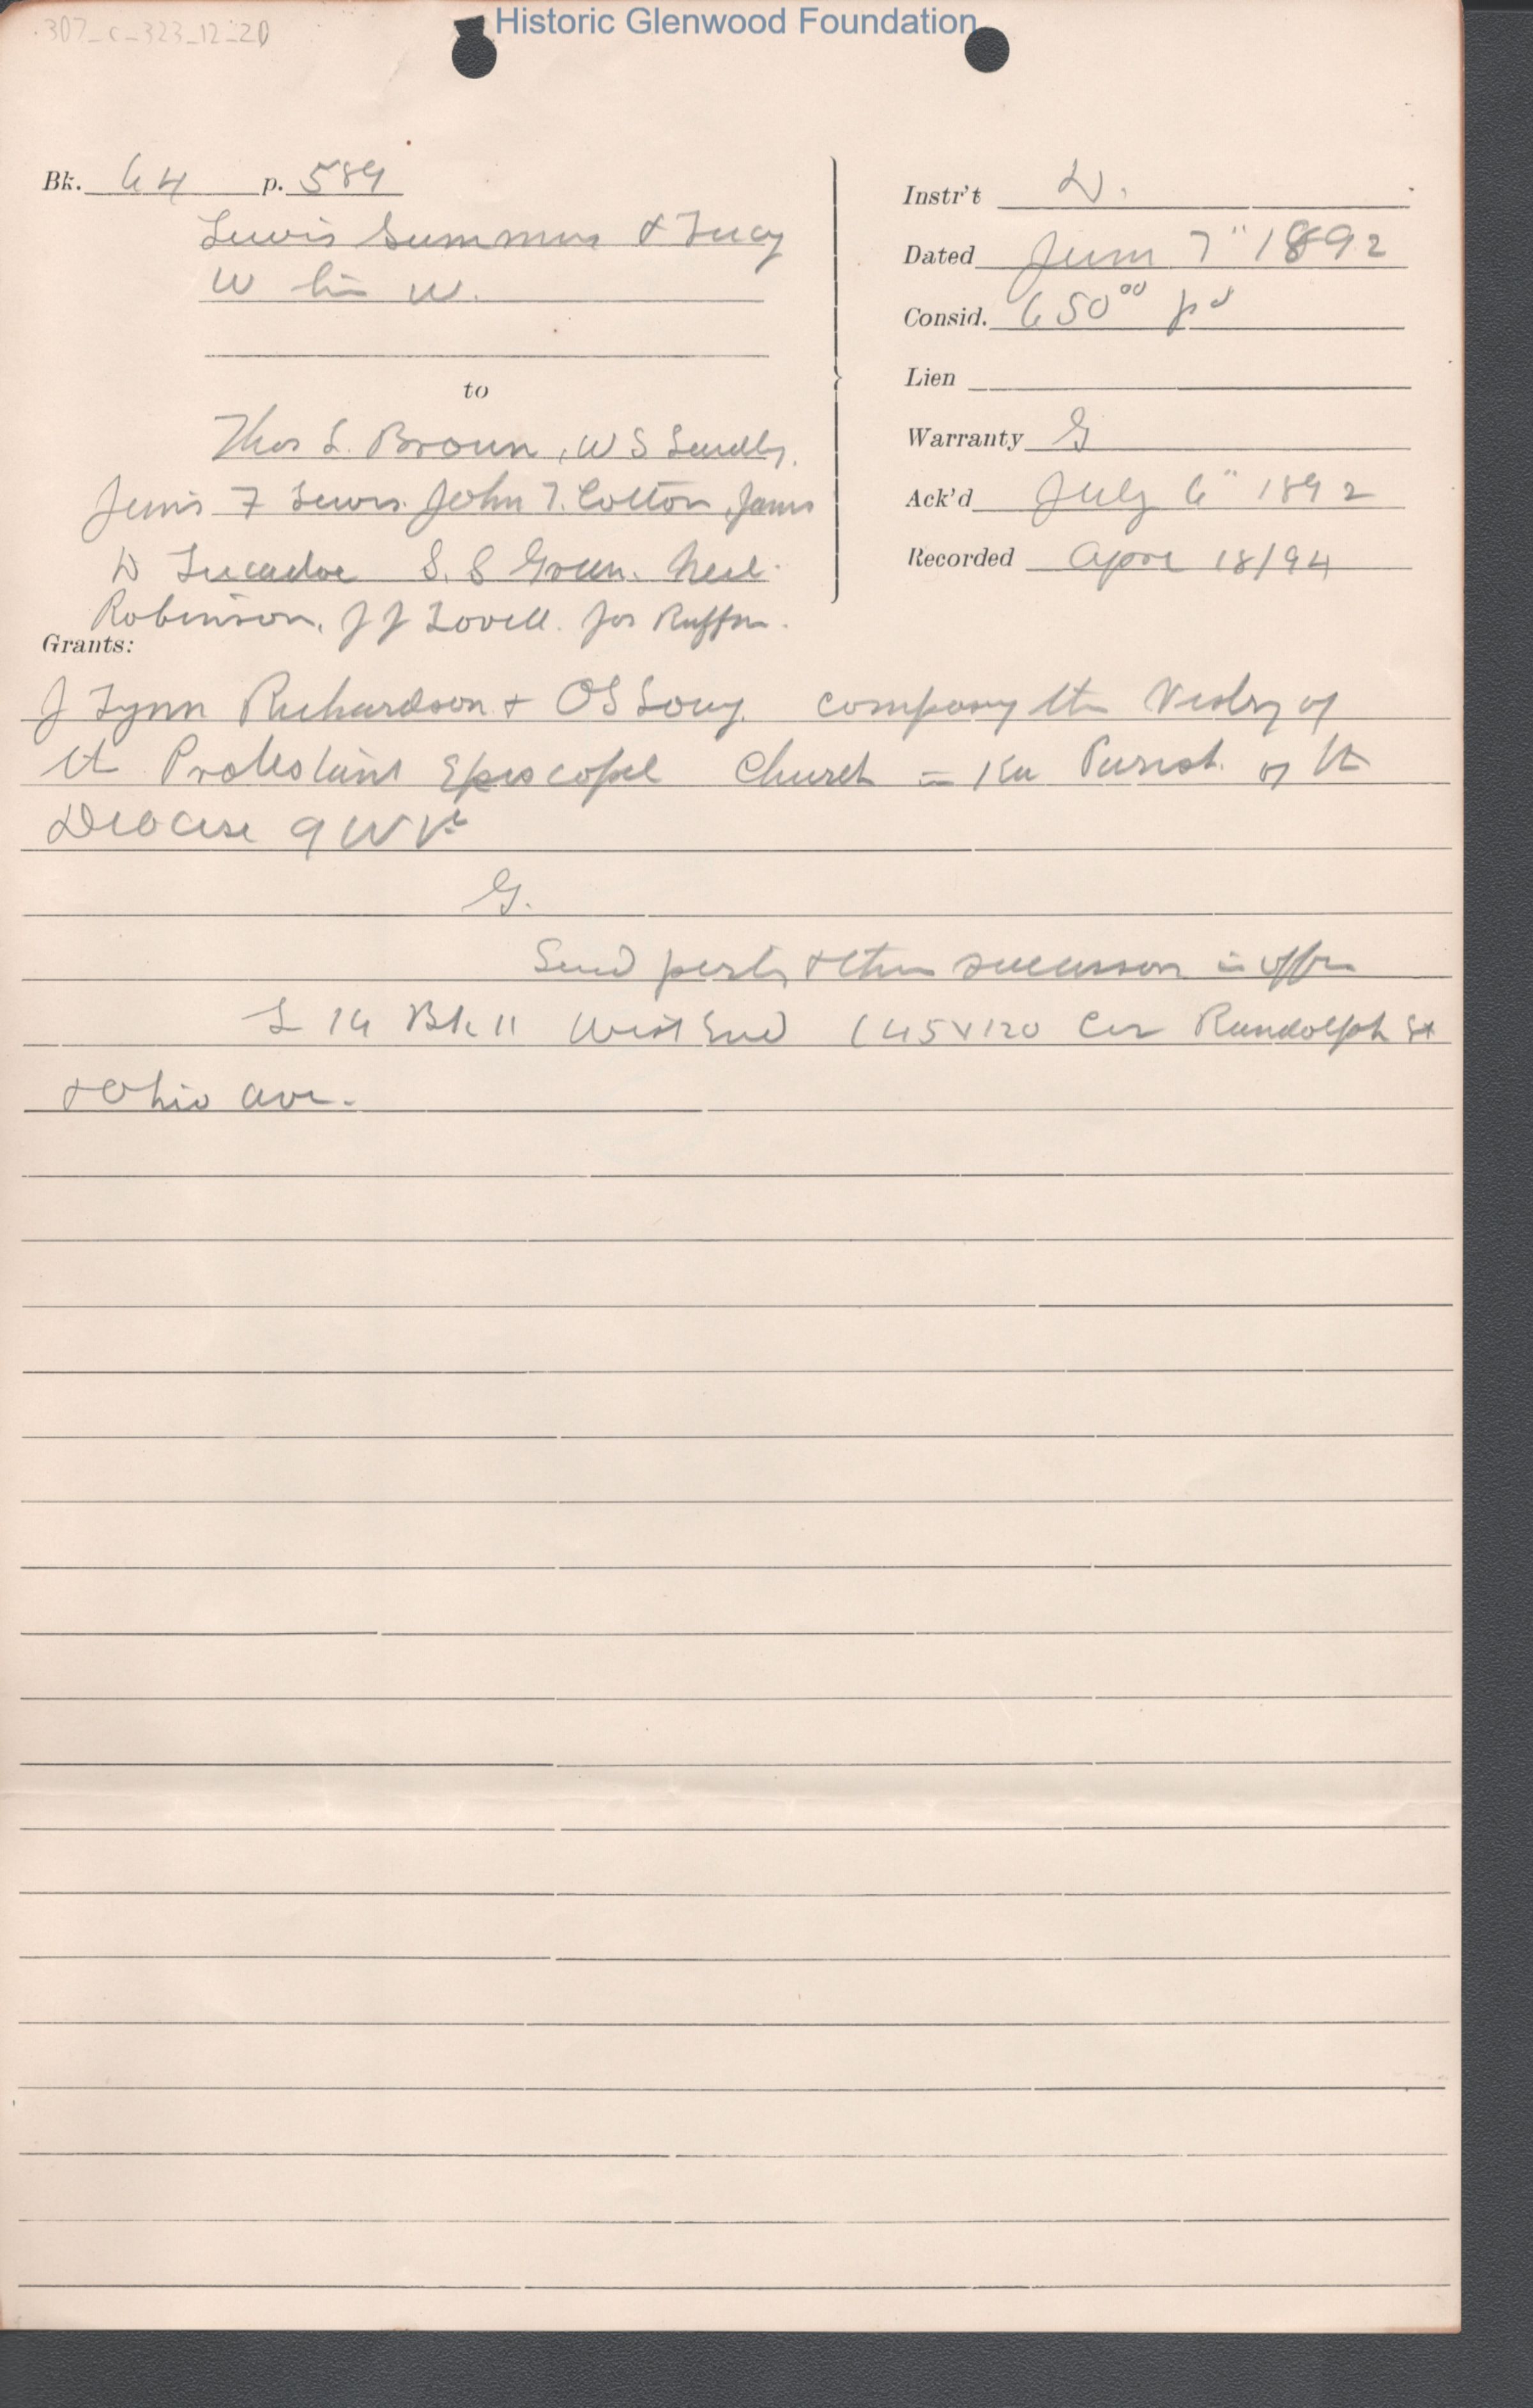 307_c_323_12_20
Historic Glenwood Foundation
Bk. 64 p. 589
Lewis Summers & Lucy
W his W.
to
Thos L. Broun, W S Laidley,
F Lewis. John T. Cotton, James
D S. S Green. Neil
Robinson, J J Lovell. Jos Ruffner.
Instr't D.
Dated June 7" 1892
Consid. 650⁰⁰ pd
Lien
Warranty G
Ack'd July 6" 1892
Recorded Apr 18/94
Grants:
J Lynn Richardson & company the Vestry of
the Protestant Episcopal Church Parish of the
Diocese of W Va
G.
Said parties & their successors in office
L 14 Bk 11 West End (45x120 Cor Randolph St
& Ohio Ave.